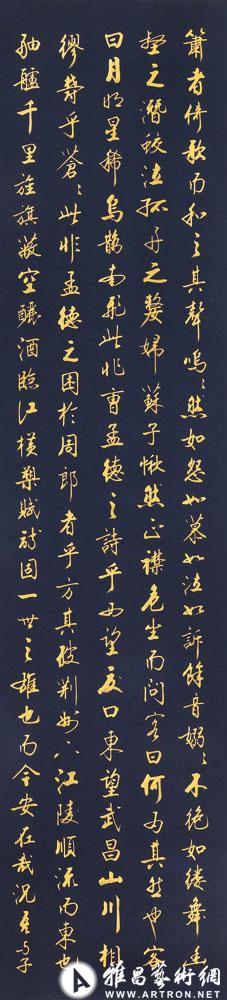 簫者倚歌而和之其聲嗚々然如怨如慕如泣如訴餘音嫋々不絕如縷舞幽
壑之潛蛟泣孤舟之嫠婦蘇子愀然正襟危坐而問客曰何為其然也客
曰月明星稀烏鵲南飛此非曹孟德之詩乎西望夏口東望武昌山川相
繆鬱乎蒼々此非孟德之困於周郎者乎方其破荊州下江陵順流而東也
舳艫千里旌旗蔽空釃酒臨江橫槊賦詩固一世之雄也而今安在哉況吾與子
雅昌藝術網
WWW.ARTRON.NET